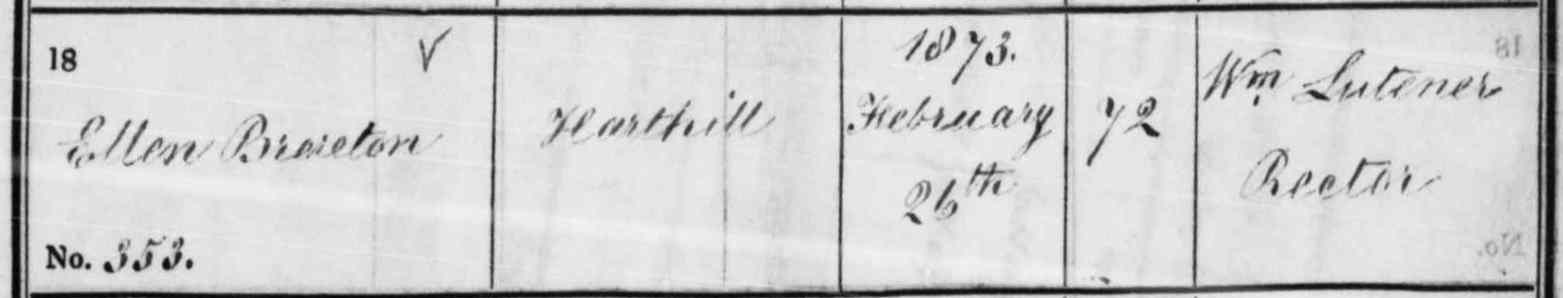 18
V
Ellen Brereton
No. 353.
Harthill
1873.
February
26th
72
Wm Lutener
Rector